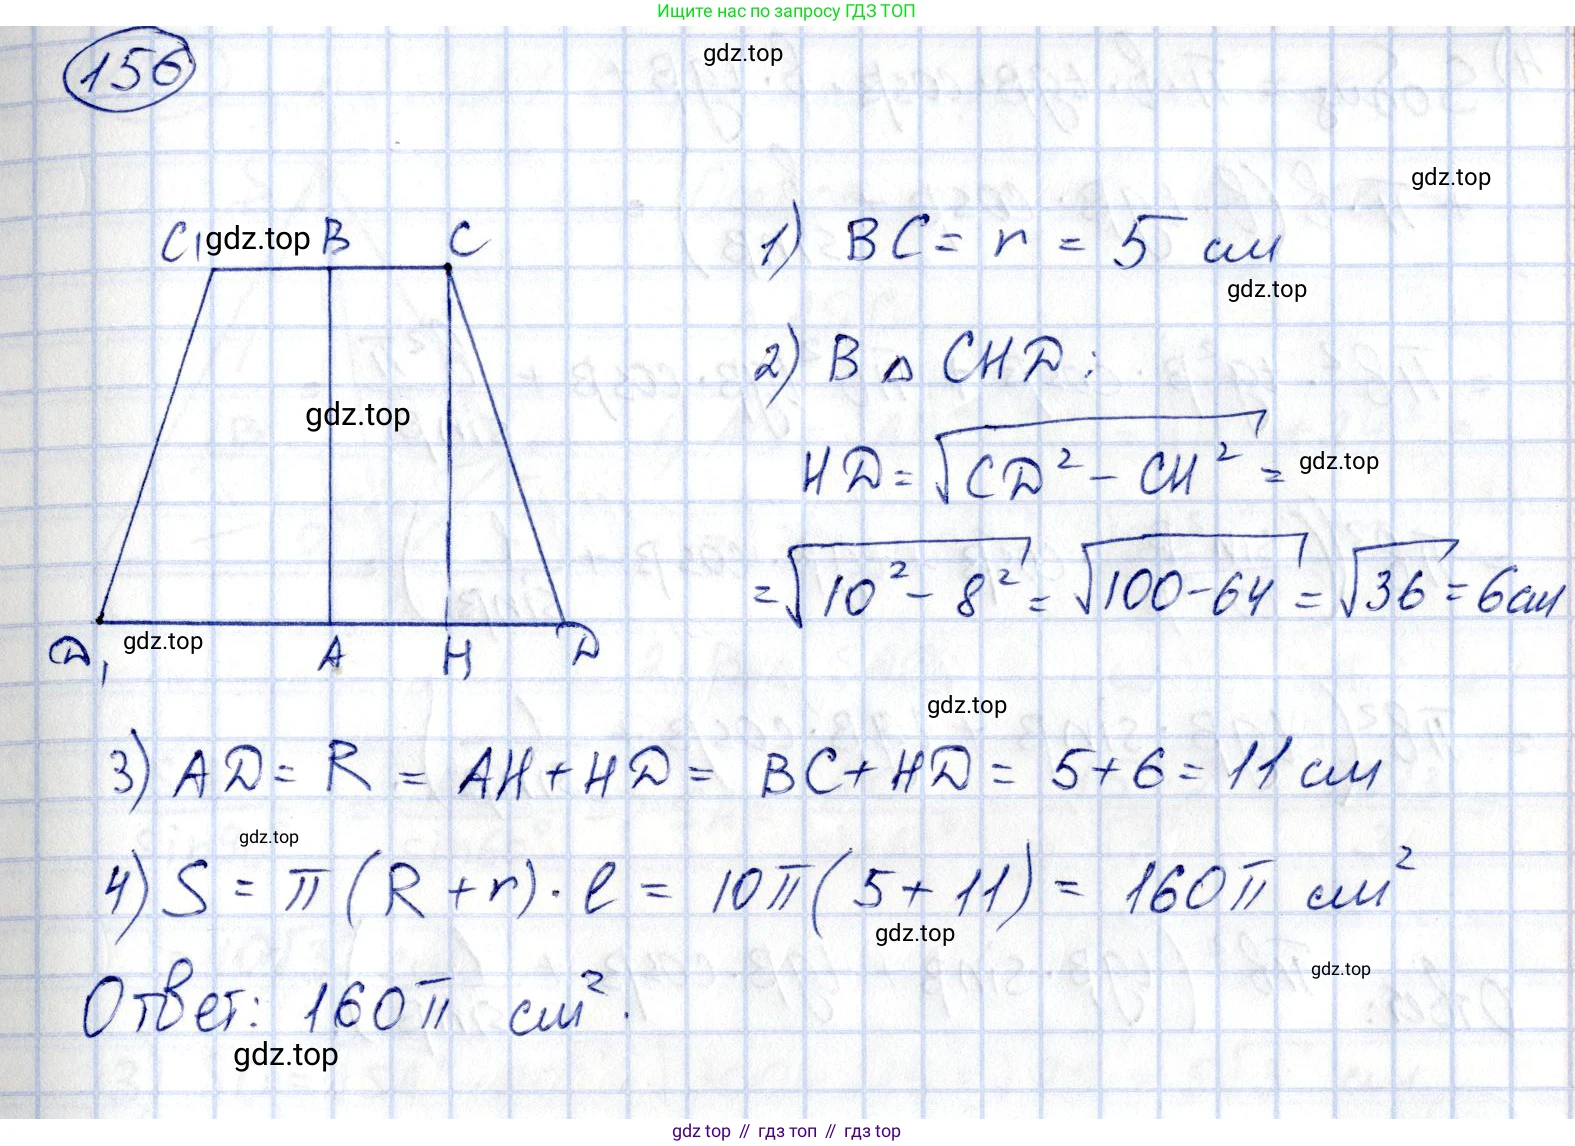 Ищите нас по запросу ГДЗ ТОП
156
gdz.top
gdz.top
C₁ gdz.top B C
1) BC = r = 5 см
gdz.top
2) В △ CHD:
gdz.top
HD = √(CD² - CH²) =
gdz.top
= √(10² - 8²) = √(100-64) = √36 = 6см
D₁ gdz.top A H D
gdz.top
3) AD = R = AH + HD = BC + HD = 5 + 6 = 11 см
gdz.top
4) S = π (R + r) · l = 10π (5 + 11) = 160π см²
gdz.top
gdz.top
Ответ: 160π см².
gdz.top
gdz top // гдз топ // гдз top